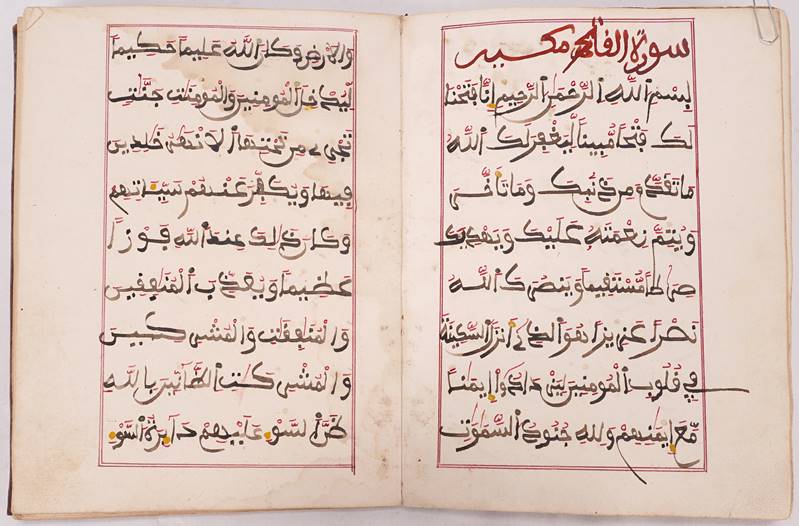 سورة الفتح مكية
بسم الله الرحمن الرحيم إنا فتحنا
لك فتحا مبينا ليغفر لك الله
ما تقدم من ذنبك وما تأخر
ويتم نعمته عليك ويهديك
صراطا مستقيما وينصرك الله
نصرا عزيزا هو الذي أنزل السكينة
في قلوب المومنين ليزدادوا إيمنا
مع إيمنهم ولله جنود السموت
والارض وكان الله عليما حكيما
ليدخل المومنين والمومنت جنت
تجري من تحتها الانهر خلدين
فيها ويكفر عنهم سياتهم
وكان ذلك عند الله فوزا
عظيما ويعذب المنفقين
والمنفقت والمشركين
والمشركت الظانين بالله
ظن السوء عليهم دايرة السوء